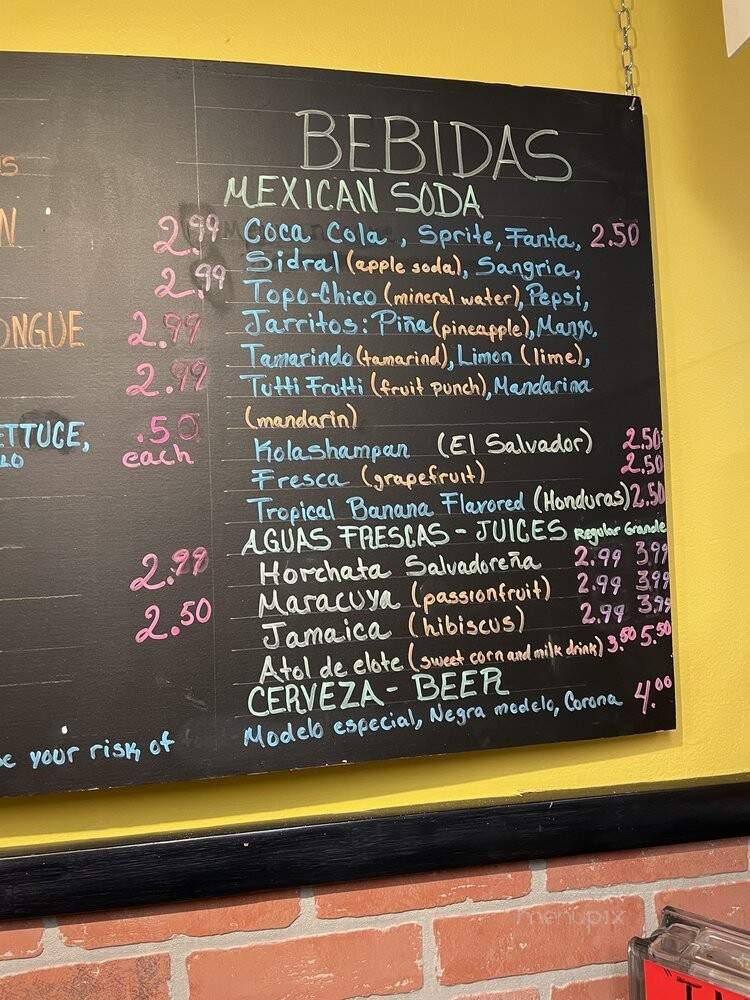 BEBIDAS
MEXICAN SODA
Coca Cola, Sprite, Fanta, 2.50
Sidral (apple soda), Sangria,
Topo-Chico (mineral water), Pepsi,
Jarritos: Piña (pineapple), Mango,
Tamarindo (tamarind), Limon (lime),
Tutti Frutti (fruit punch), Mandarina
(mandarin)
Kolashampan (El Salvador) 2.50
Fresca (grapefruit) 2.50
Tropical Banana Flavored (Honduras) 2.50
AGUAS FRESCAS - JUICES Regular Grande
Horchata Salvadoreña 2.99 3.99
Maracuya (passionfruit) 2.99 3.99
Jamaica (hibiscus) 2.99 3.99
Atol de elote (sweet corn and milk drink) 3.50 5.50
CERVEZA - BEER
Modelo especial, Negra modelo, Corona 4.00
2.99
2.99
ONGUE 2.99
2.99
ETTUCE, .50
each
2.99
2.50
your risk of
menupix